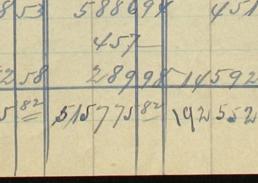 8 53 588694 451
457-
258 28998 14592
5 82 515775 82 192552